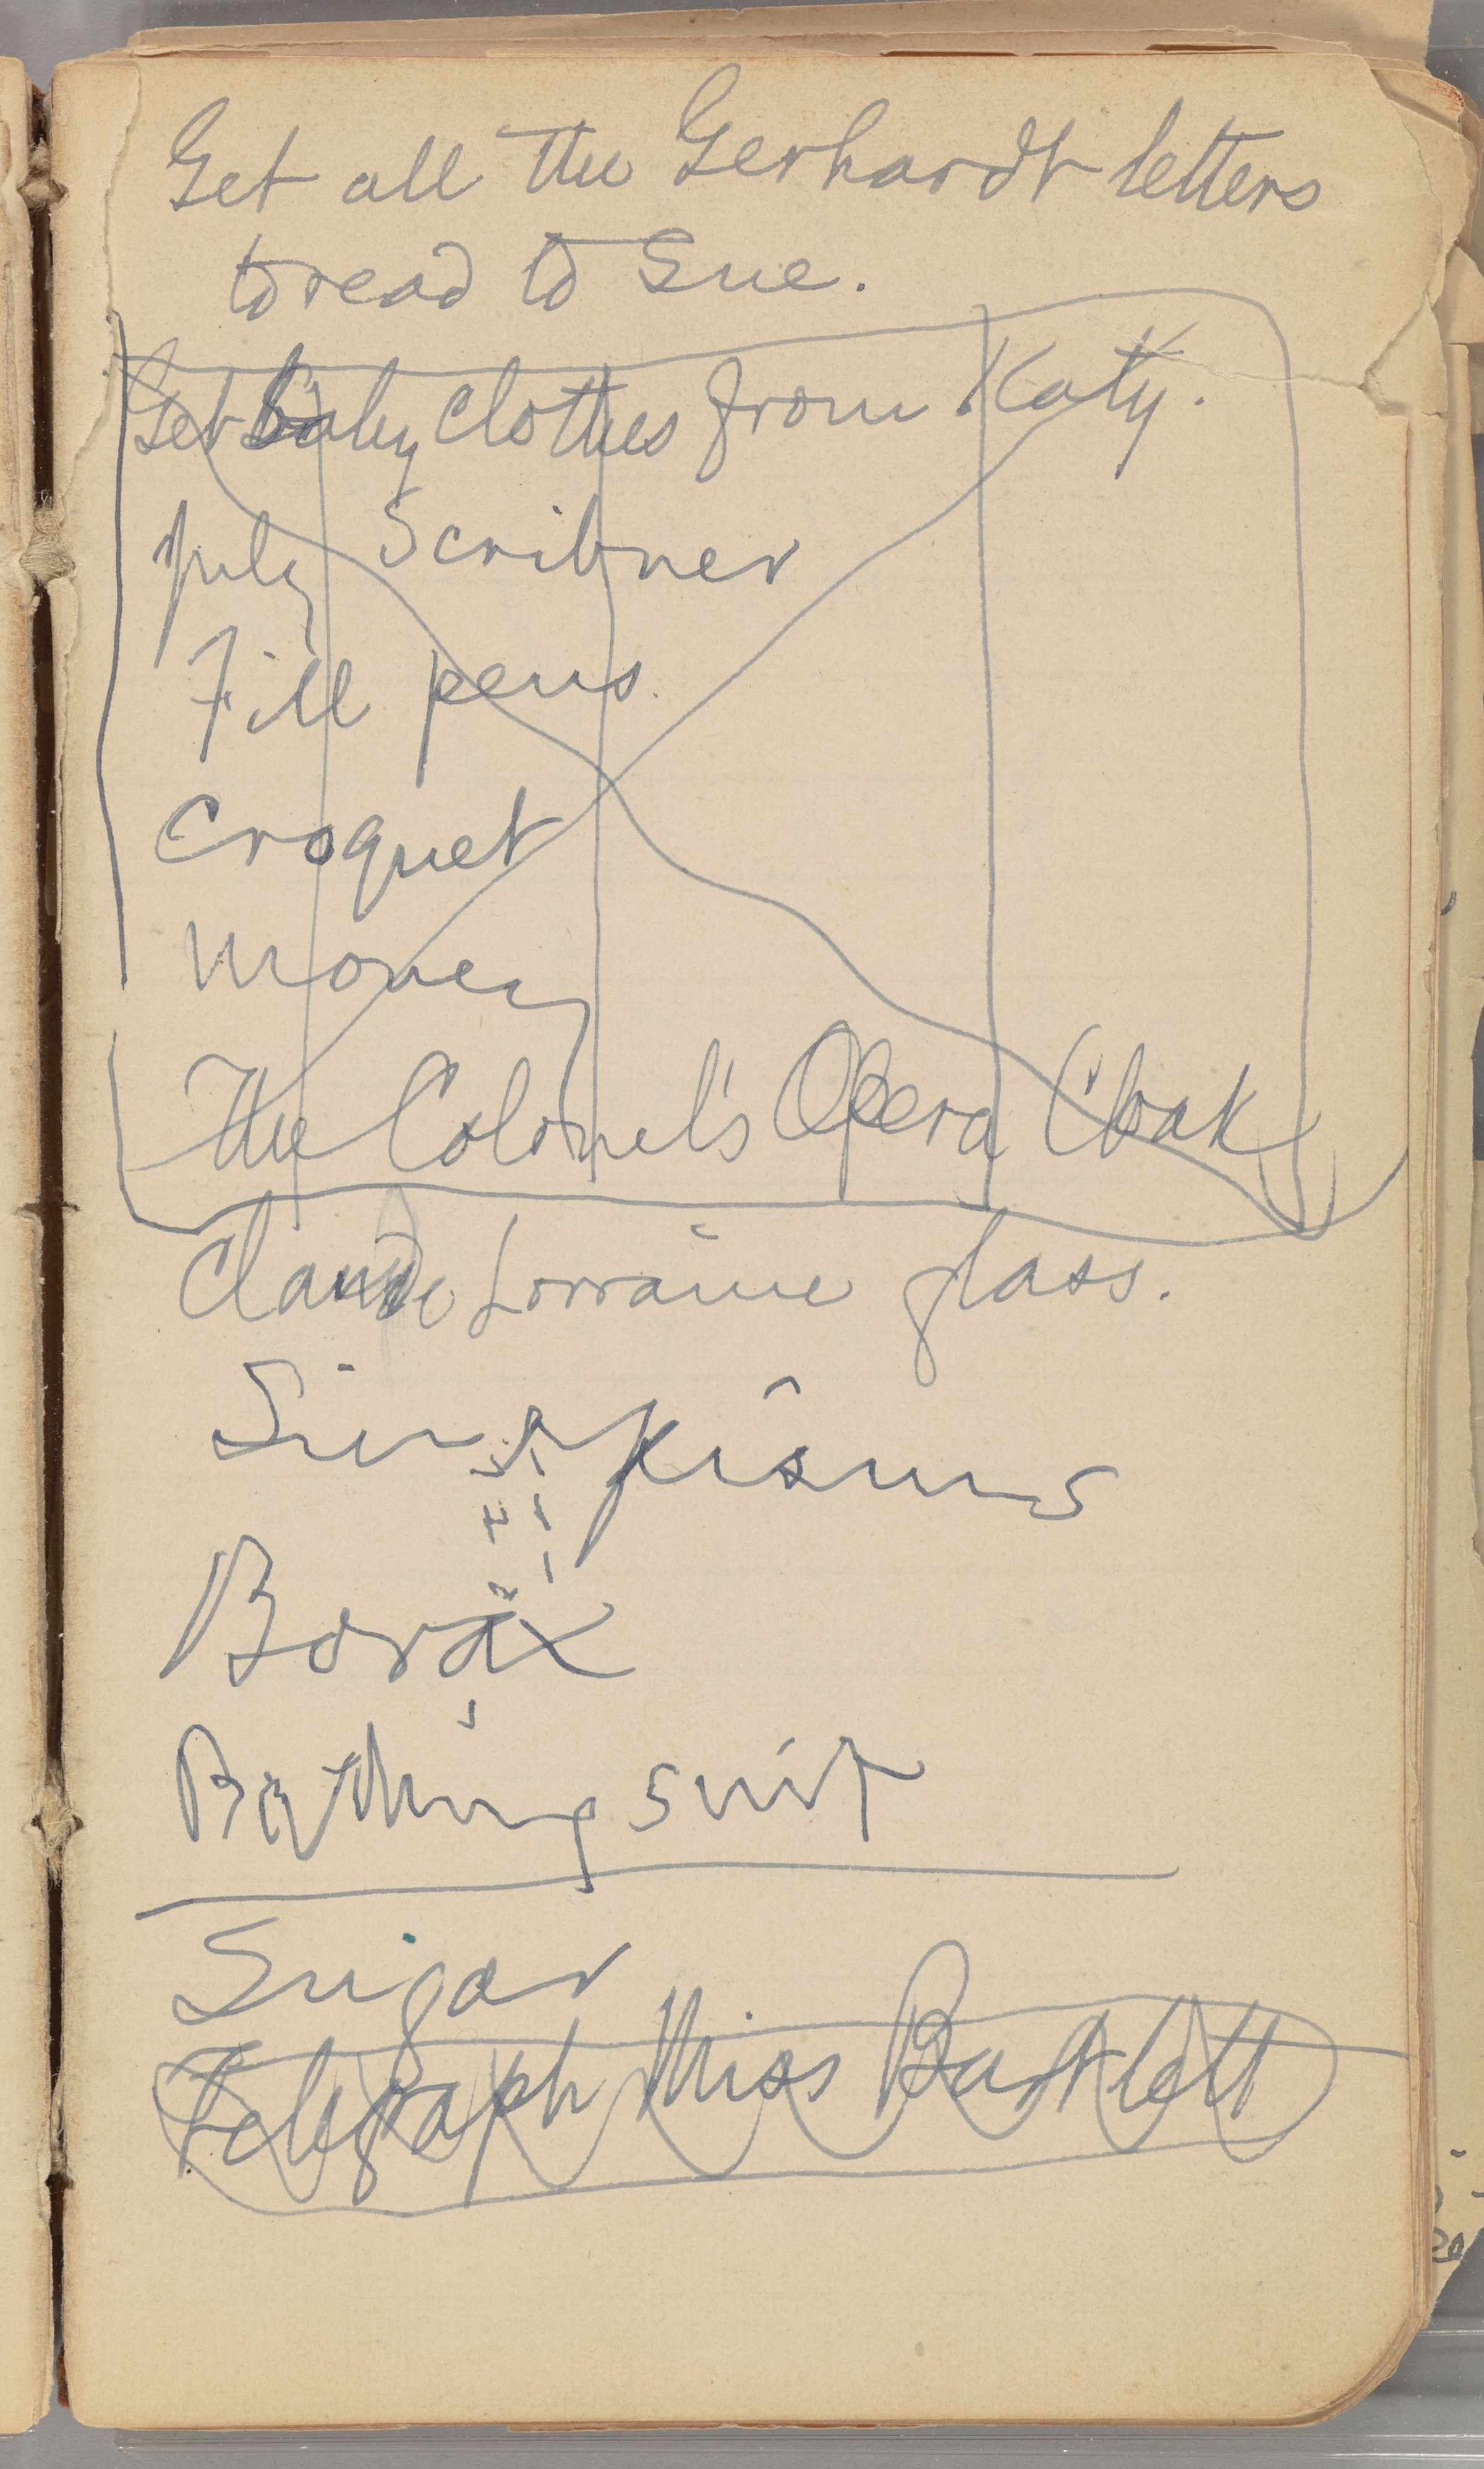 Get all the Gerhardt letters
to read to Sue.
Get baby clothes from Katy.
July Scribner
Fill pens.
Croquet
Money
The Colonel's Opera Cloak
Claude Lorraine glass.
Sinapisms
Borax
Bathing suit
Sugar
Telegraph Miss Bartlett